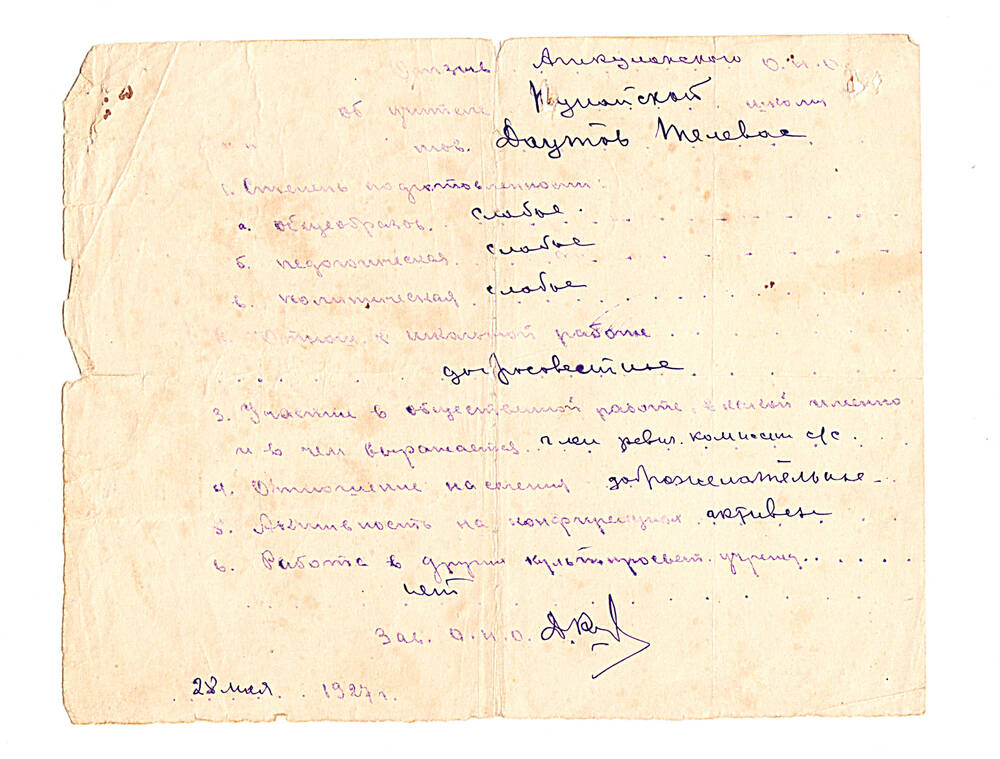 Отзыв Ачикулакского О.Н.О.
об учителе Нунайской школы
" " тов. Даутов Телевас
1. Степень подготовленности:
а. общеобразов. слабые.
б. педагогическая. слабые
в. политическая слабые
2. Отнош. к школьной работе
добросовестные
3. Участие в общественной работе, в какой именно
и в чем выражается член ревиз. комиссии с/с.
4. Отношение населения доброжелательные
5. Активность на конференциях активен
6. Работа в других культпросвет. учрежд.
нет
Зав. О.Н.О.
28 мая 1927 г.